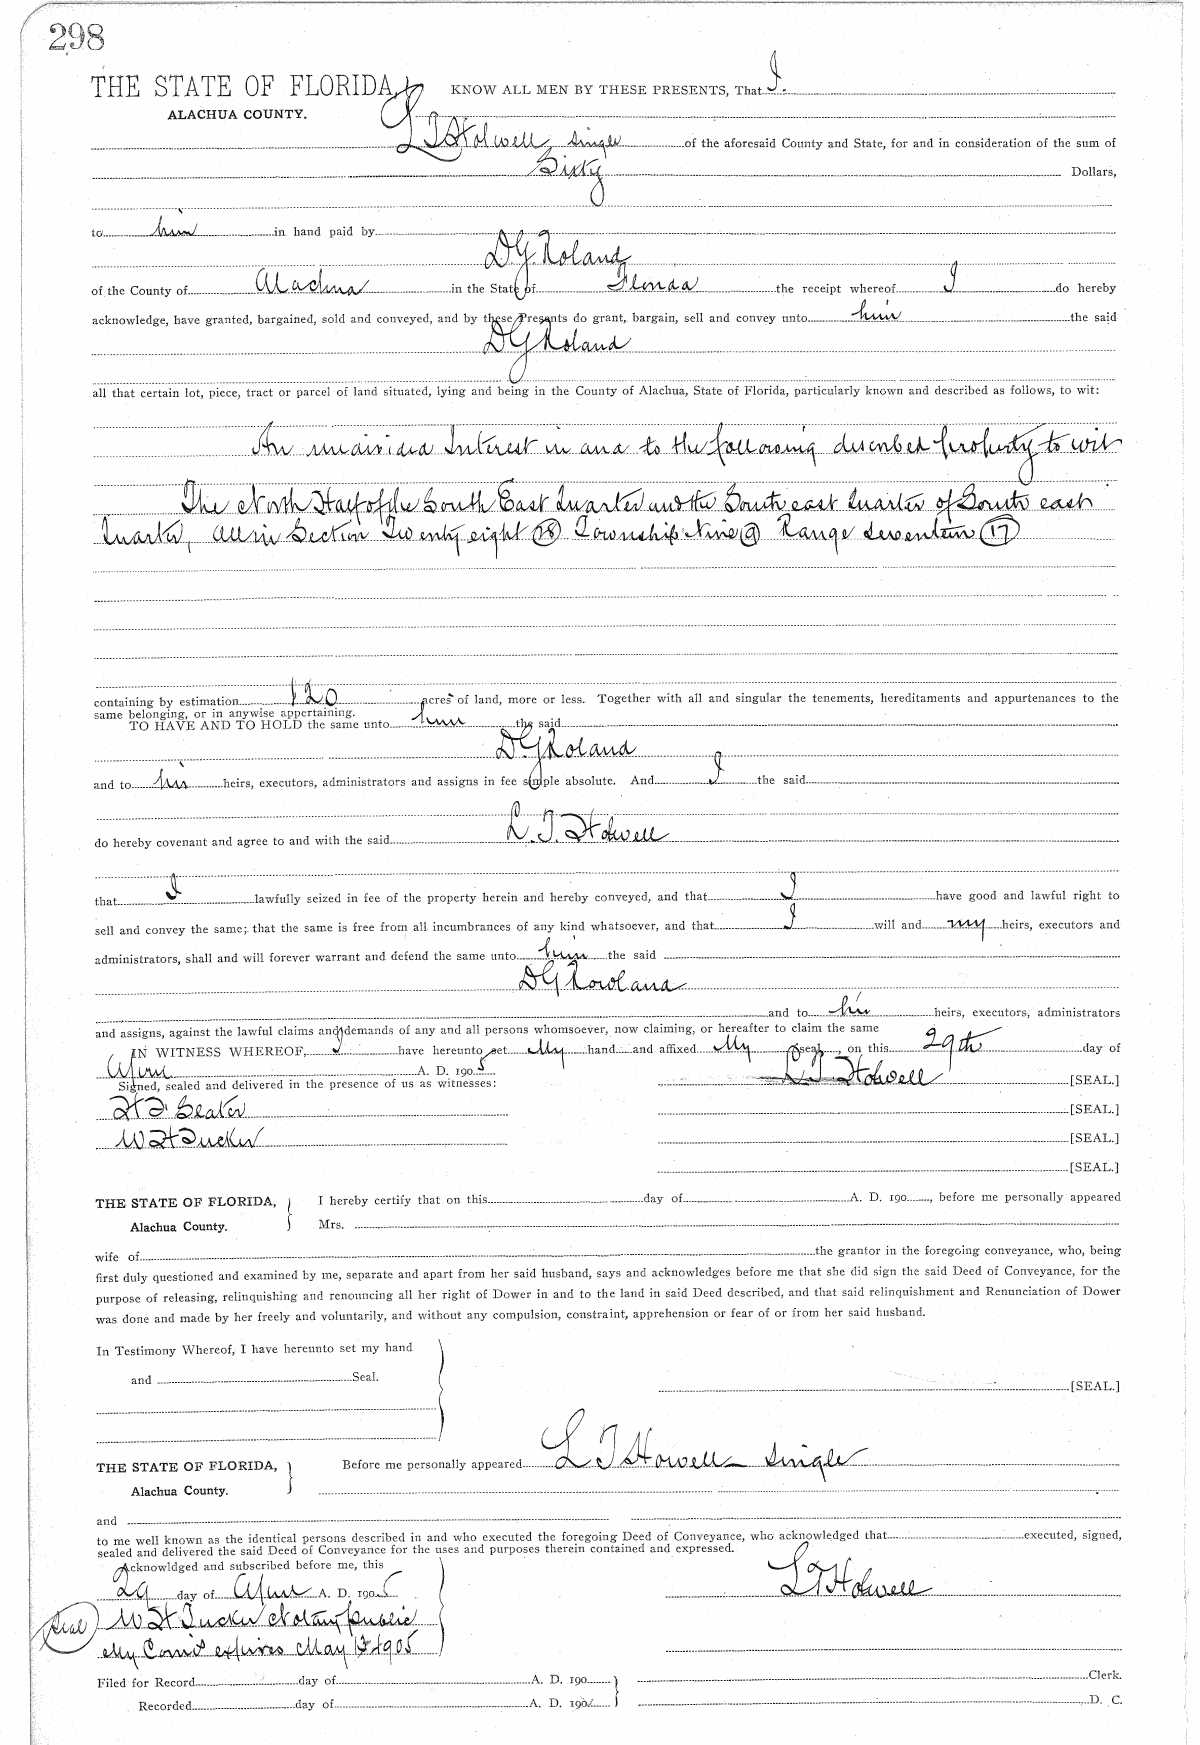 298
THE STATE OF FLORIDA, KNOW ALL MEN BY THESE PRESENTS, That I.
ALACHUA COUNTY.
L T Holwell, single of the aforesaid County and State, for and in consideration of the sum of
Sixty Dollars,
to him in hand paid by
D G Roland
of the County of Alachua in the State of Florida the receipt whereof I do hereby
acknowledge, have granted, bargained, sold and conveyed, and by these Presents do grant, bargain, sell and convey unto him the said
D G Roland
all that certain lot, piece, tract or parcel of land situated, lying and being in the County of Alachua, State of Florida, particularly known and described as follows, to wit:
An undivided Interest in and to the following described property to wit
The North Half of the South East Quarter and the South east Quarter of South east
Quarter, all in Section Twenty eight (28) Township Nine (9) Range Seventeen (17)
containing by estimation 120 acres of land, more or less. Together with all and singular the tenements, hereditaments and appurtenances to the
same belonging, or in anywise appertaining.
TO HAVE AND TO HOLD the same unto him the said
D G Roland
and to his heirs, executors, administrators and assigns in fee simple absolute. And I the said
L. T. Holwell
do hereby covenant and agree to and with the said
that I lawfully seized in fee of the property herein and hereby conveyed, and that I have good and lawful right to
sell and convey the same; that the same is free from all incumbrances of any kind whatsoever, and that I will and my heirs, executors and
administrators, shall and will forever warrant and defend the same unto him the said
D G Rowland
and to his heirs, executors, administrators
and assigns, against the lawful claims and demands of any and all persons whomsoever, now claiming, or hereafter to claim the same
IN WITNESS WHEREOF, I have hereunto set My hand and affixed My seal, on this 29th day of
April A. D. 1905
Signed, sealed and delivered in the presence of us as witnesses: L T Holwell [SEAL.]
[SEAL.]
W H Tucker [SEAL.]
[SEAL.]
THE STATE OF FLORIDA, I hereby certify that on this day of A. D. 190 , before me personally appeared
Alachua County. Mrs.
wife of the grantor in the foregoing conveyance, who, being
first duly questioned and examined by me, separate and apart from her said husband, says and acknowledges before me that she did sign the said Deed of Conveyance, for the
purpose of releasing, relinquishing and renouncing all her right of Dower in and to the land in said Deed described, and that said relinquishment and Renunciation of Dower
was done and made by her freely and voluntarily, and without any compulsion, constraint, apprehension or fear of or from her said husband.
In Testimony Whereof, I have hereunto set my hand
and Seal. [SEAL.]
THE STATE OF FLORIDA, Before me personally appeared L T Howell single
Alachua County.
and
to me well known as the identical persons described in and who executed the foregoing Deed of Conveyance, who acknowledged that executed, signed,
sealed and delivered the said Deed of Conveyance for the uses and purposes therein contained and expressed.
Acknowldged and subscribed before me, this
29 day of April A. D. 1905 L T Holwell
Seal W H Tucker Notary public
My Comis expires May 1905
Filed for Record day of A. D. 190 Clerk.
Recorded day of A. D. 190 D. C.